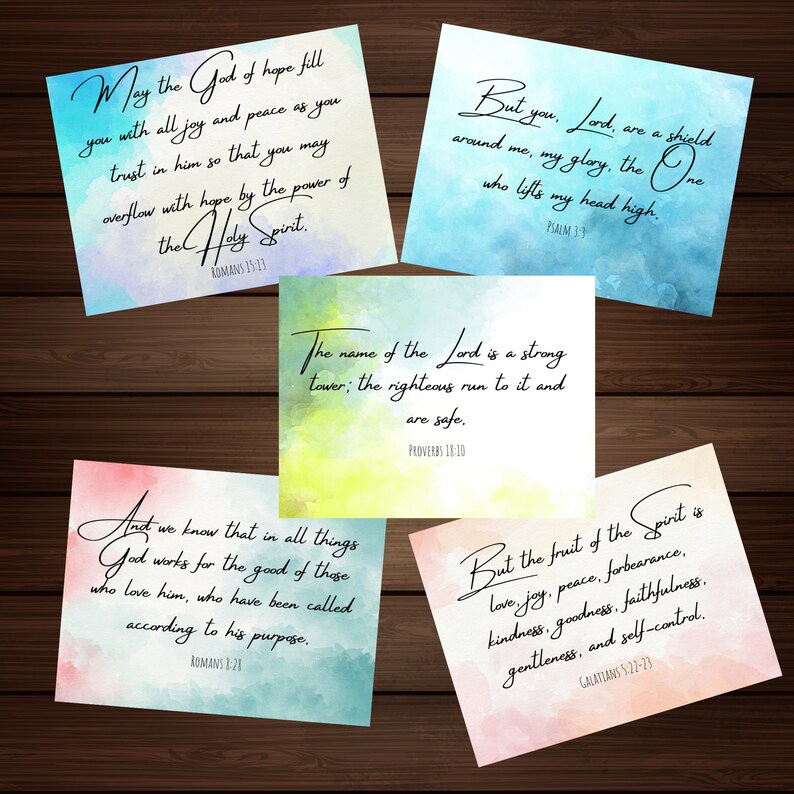 May the God of hope fill
you with all joy and peace as you
trust in him so that you may
overflow with hope by the power of
the Holy Spirit.
Romans 15:13
But you, Lord, are a shield
around me, my glory, the One
who lifts my head high.
Psalm 3:3
The name of the Lord is a strong
tower; the righteous run to it and
are safe.
Proverbs 18:10
And we know that in all things
God works for the good of those
who love him, who have been called
according to his purpose.
Romans 8:28
But the fruit of the Spirit is
love, joy, peace, forbearance,
kindness, goodness, faithfulness,
gentleness, and self-control.
Galatians 5:22-23